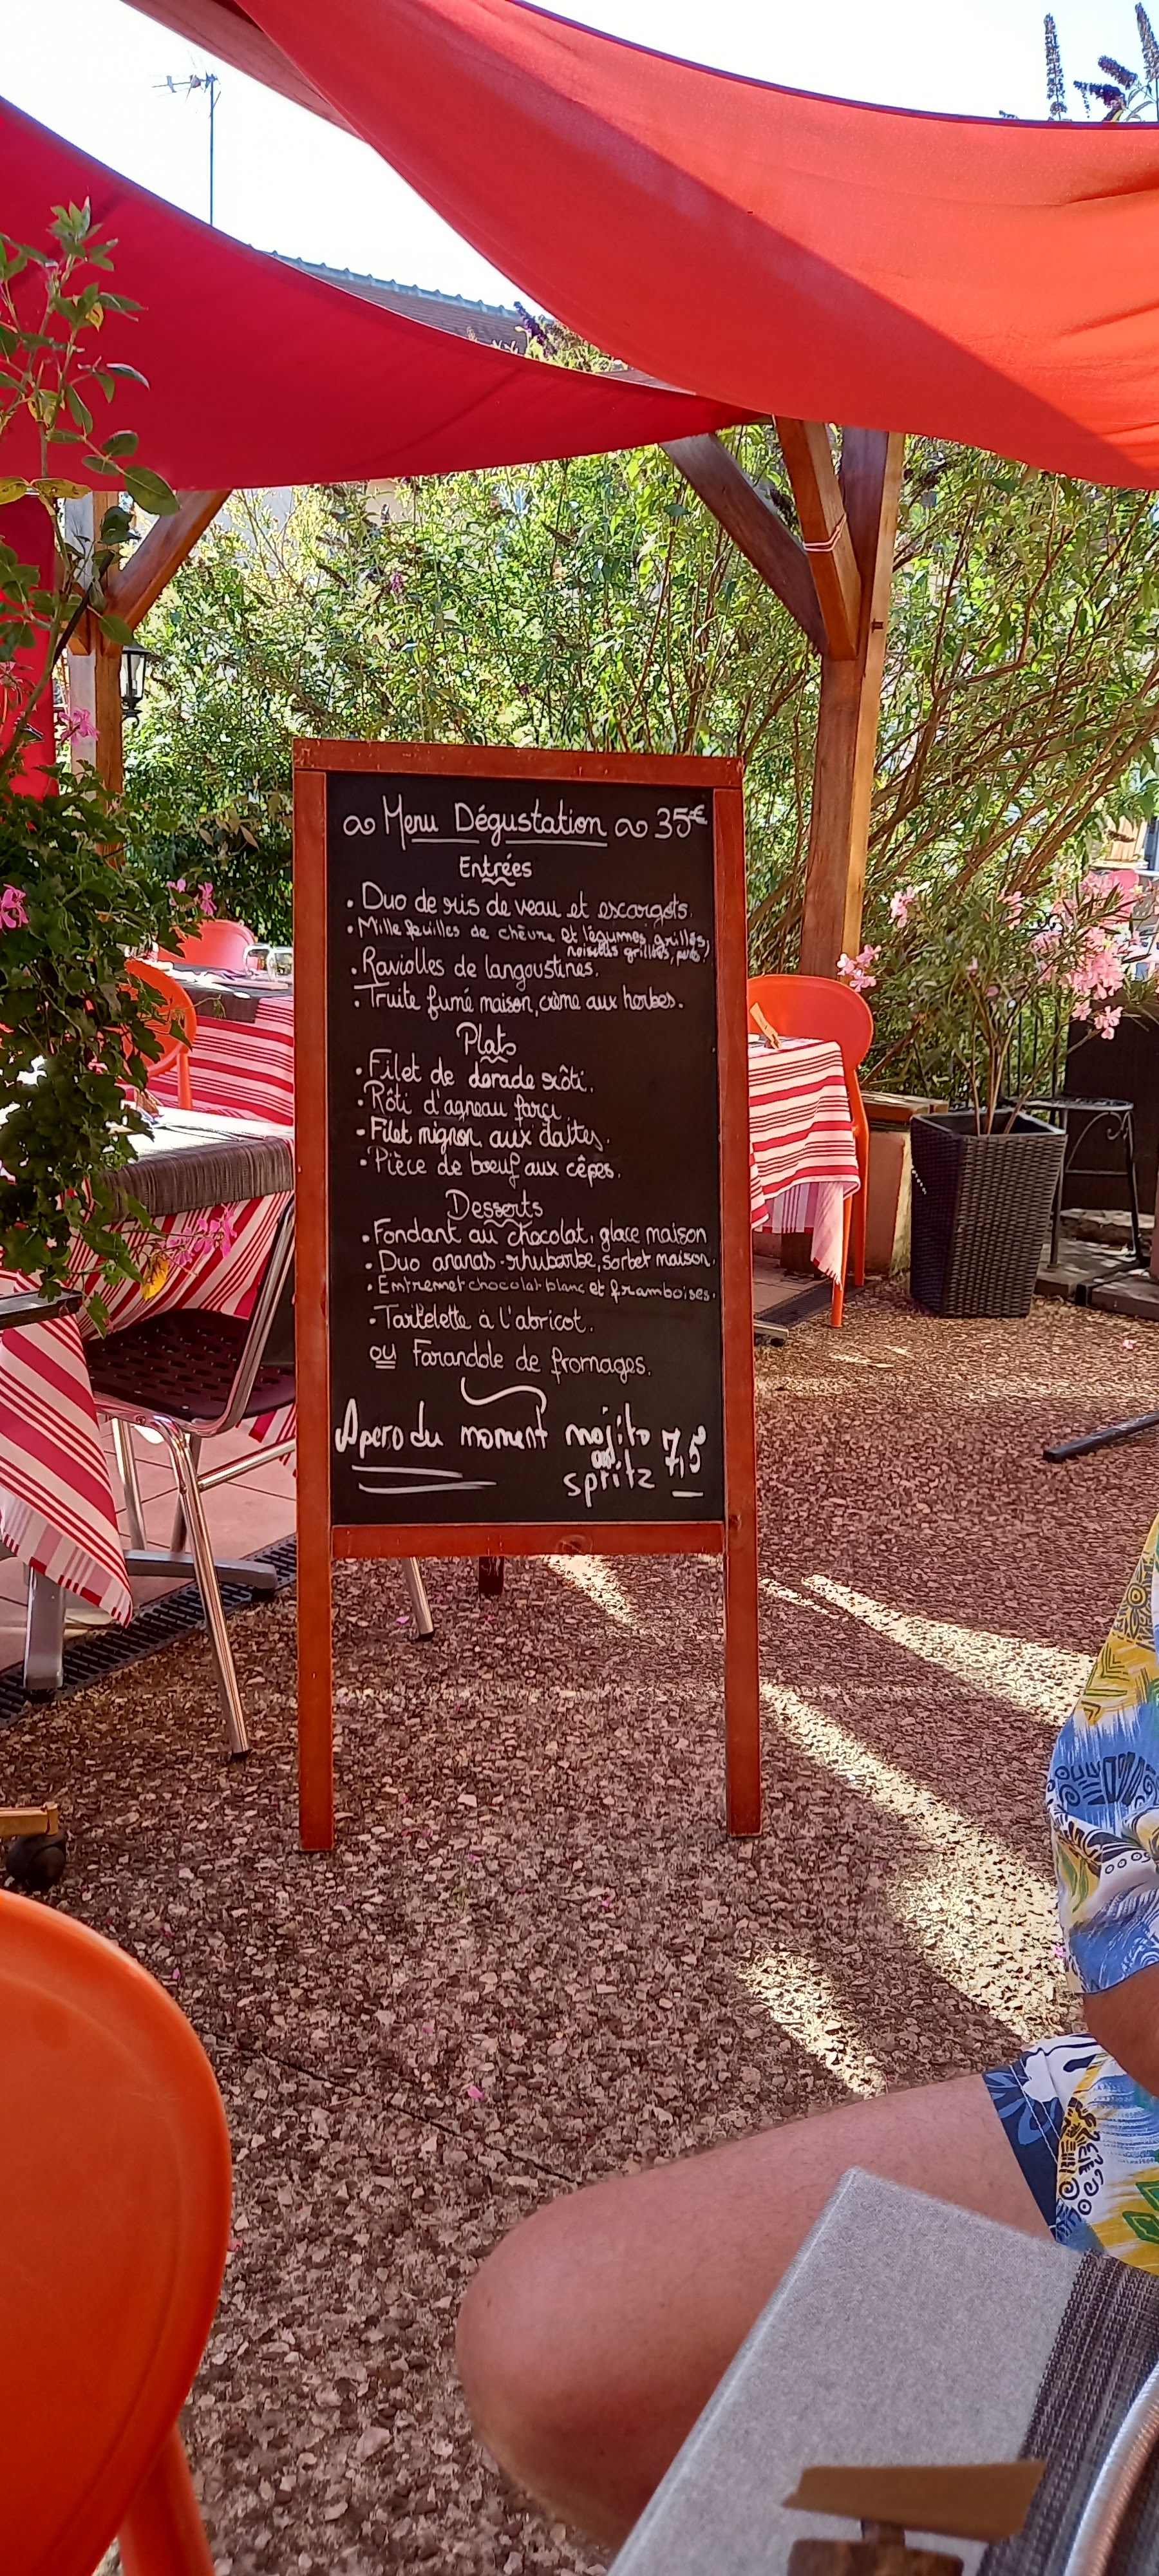 Menu Dégustation 35€
Entrées
• Duo de ris de veau et escargots.
• Mille feuilles de chèvre et légumes grillés,
noisettes grillées,
• Raviolles de langoustines.
• Truite fumé maison, crème aux herbes.
Plats
• Filet de dorade rôti.
• Rôti d'agneau farçi
• Filet mignon aux dattes.
• Pièce de boeuf aux cêpes.
Desserts
• Fondant au chocolat, glace maison
• Duo ananas-rhubarbe, sorbet maison.
• Entremet chocolat blanc et framboises.
• Tartelette à l'abricot.
ou Farandole de fromages.
Apero du moment mojito 7,5
spritz